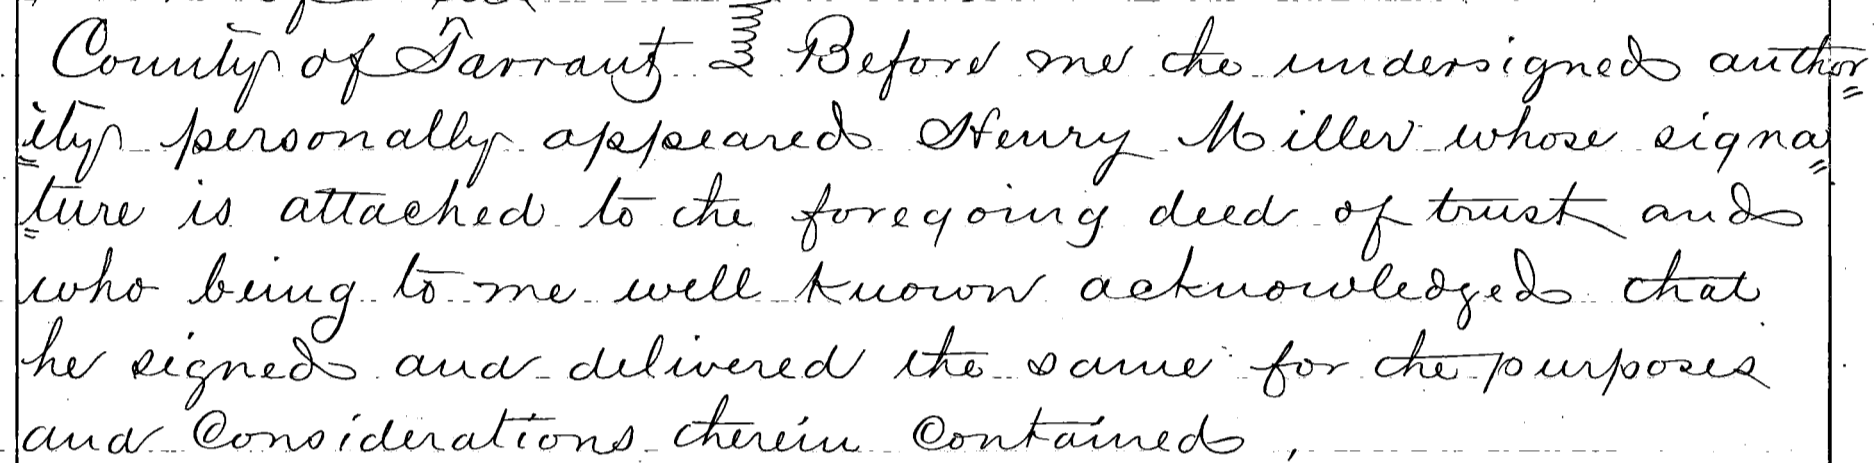 County of Tarrant } Before me the undersigned author=
=ity personally appeared Henry Miller whose signa=
=ture is attached to the foregoing deed of trust and
who being to me well known acknowledged that
he signed and delivered the same for the purposes
and Considerations therein Contained,